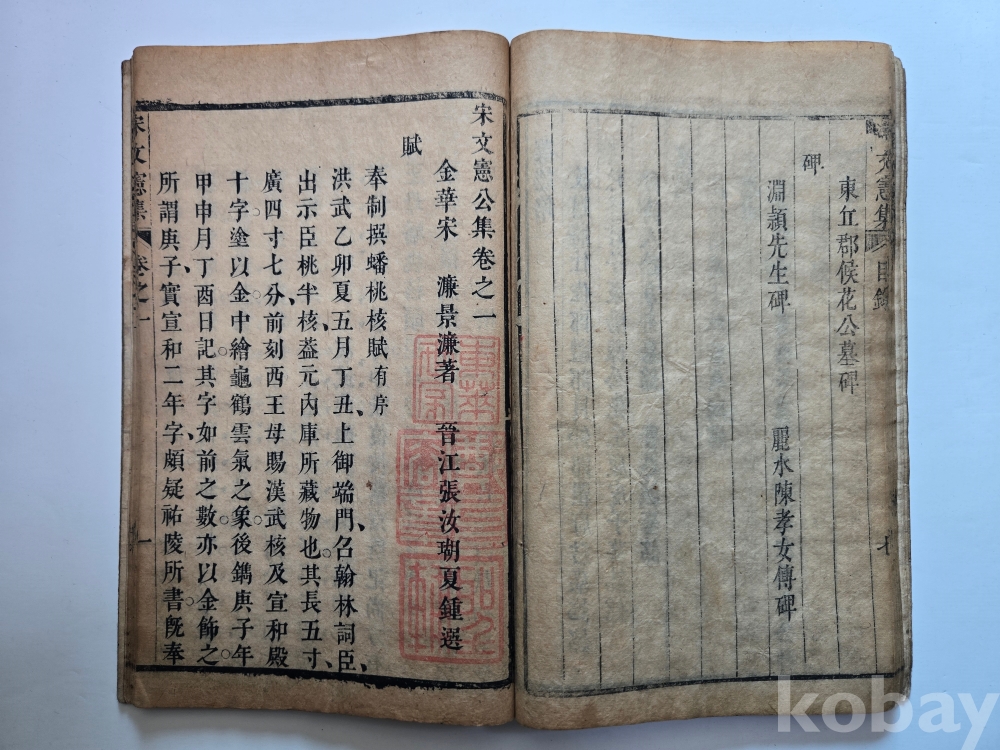 東丘郡侯花公墓碑
碑
淵頴先生碑 麗水陳孝女傳碑
宋文憲公集卷之一
金華宋 濂景濂著 晉江張汝瑚夏鍾選
賦
奉制撰蟠桃核賦有序
洪武乙卯夏五月丁丑、上御端門、召翰林詞臣、
出示臣桃半核葢元内庫所藏物也其長五寸、
廣四寸七分前刻西王母賜漢武桃及宣和殿
十字塗以金中繪龜鶴雲氣之象後鐫庚子年
甲申月丁酉日記其字如前之數亦以金飾之
所謂庚子、實宣和二年字、頗疑祐陵所書旣奉
一
宋文憲集 卷之一
kobay